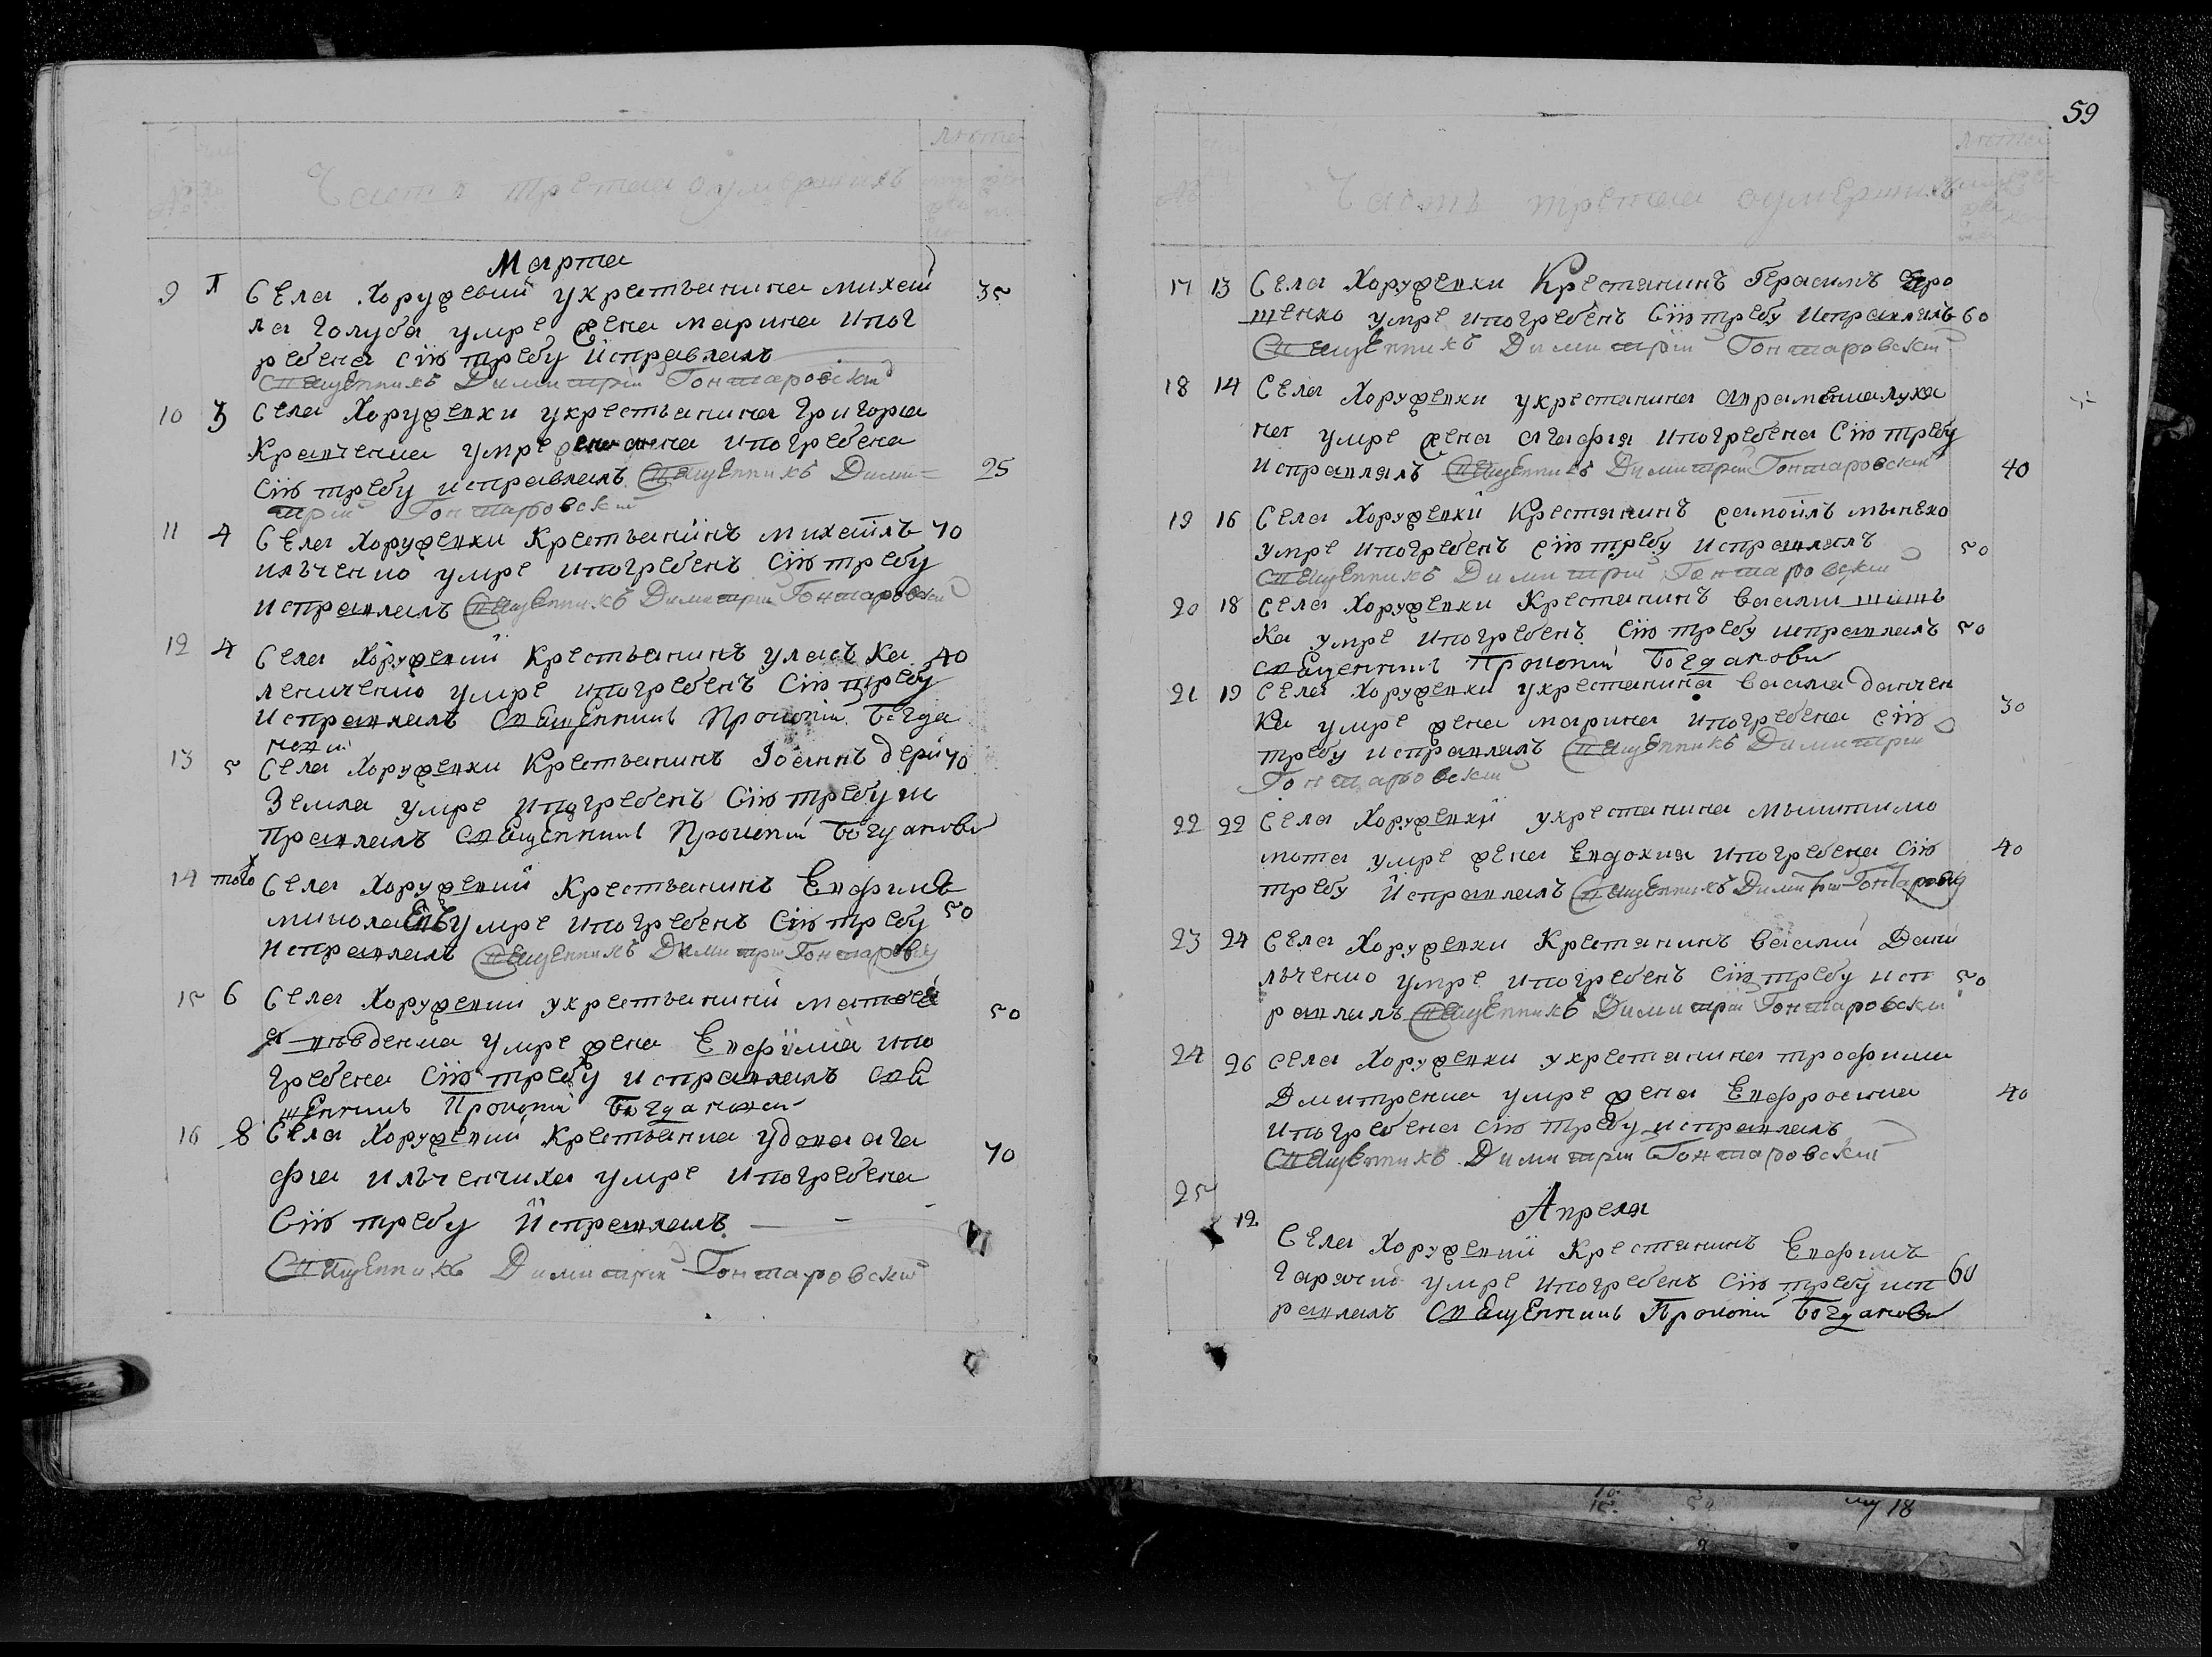 59
лѣта
Часть третая оумершихъ
Марта
9 1 Села Хоружевки у крестьянина михаи
ла Голуба умре жена марина ипог 35
ребена сію требу исправлялъ
Священникъ Димитрій Гонтаровскій
10 3 Села Хоружевки у крестьянина Григория
Кравченка умре жена анна ипогребена
сію требу исправлялъ Священникъ Дими= 25
трій Гонтаровскій
11 4 Села Хоружевки Крестьянинъ михаилъ 70
илъченко умре ипогребенъ Сію требу
исправлялъ Священникъ Димитрій Гонтаровскій
12 4 Села Хоружевки Крестьянинъ уласъ Ка 40
лениченко умре ипогребенъ Сію требу
исправлялъ Священникъ Прокопій Богда
новичъ
13 5 Села Хоружевки Крестьянинъ Іоаннъ дери 70
Земля умре ипогребенъ Сію требу ис
правлялъ Священникъ Прокопій Богданови
14 того Села Хоружевки Крестьянинъ Евфимъ
умре ипогребенъ Сію требу 50
исправлялъ Священникъ Димитрій Гонтаровскій
15 6 Села Хоружевки у крестьянина матвея
умре жена Евфимія ипо 50
гребена Сію требу исправлялъ Свя
щенникъ Прокопій Богданович
16 8 Села Хоружевки Крестьянка удова ага
фия илъченчиха умре ипогребена 70
Сію требу исправлялъ
Священникъ Димитрій Гонтаровскій
лѣта
Часть третая оумершихъ
17 13 Села Хоружевки Крестянинъ Герасимъ Яро
шенко умре ипогребенъ Сію требу исправлялъ 60
Священникъ Димитрій Гонтаровскій
18 14 Села Хоружевки у крестянина
умре жена агафия ипогребена Сію требу
исправлялъ Священникъ Димитрій Гонтаровскій 40
19 16 Села Хоружевки Крестянинъ самойлъ
умре ипогребенъ сію требу исправлялъ 50
Священникъ Димитрій Гонтаровскій
20 18 Села Хоружевки Крестянинъ василий
ка умре ипогребенъ Сію требу исправлялъ 50
священникъ Прокопій Богданови
21 19 Села Хоружевки у крестянина василя данчен
ка умре жена марина ипогребена сію 30
требу исправлялъ Священникъ Димитрій
Гонтаровскій
22 22 Села Хоружевки у крестянина
умре жена Евдокия ипогребена сию 40
требу исправлялъ Священникъ Димитрій Гонтаровскій
23 24 Села Хоружевки Крестянинъ василий Дани
лъченко умре ипогребенъ сію требу исп 50
равлялъ Священникъ Димитрій Гонтаровскій
24 26 Села Хоружевки у крестянина трофима
Дмитренка умре жена Евфросиния 40
ипогребена сію требу исправлялъ
Священникъ Димитрій Гонтаровскій
Апреля
25 12 Села Хоружевки Крестянинъ Евфимъ
Гарячий умре ипогребенъ Сію требу исп 60
равлялъ Священникъ Прокопій Богданови
му 18